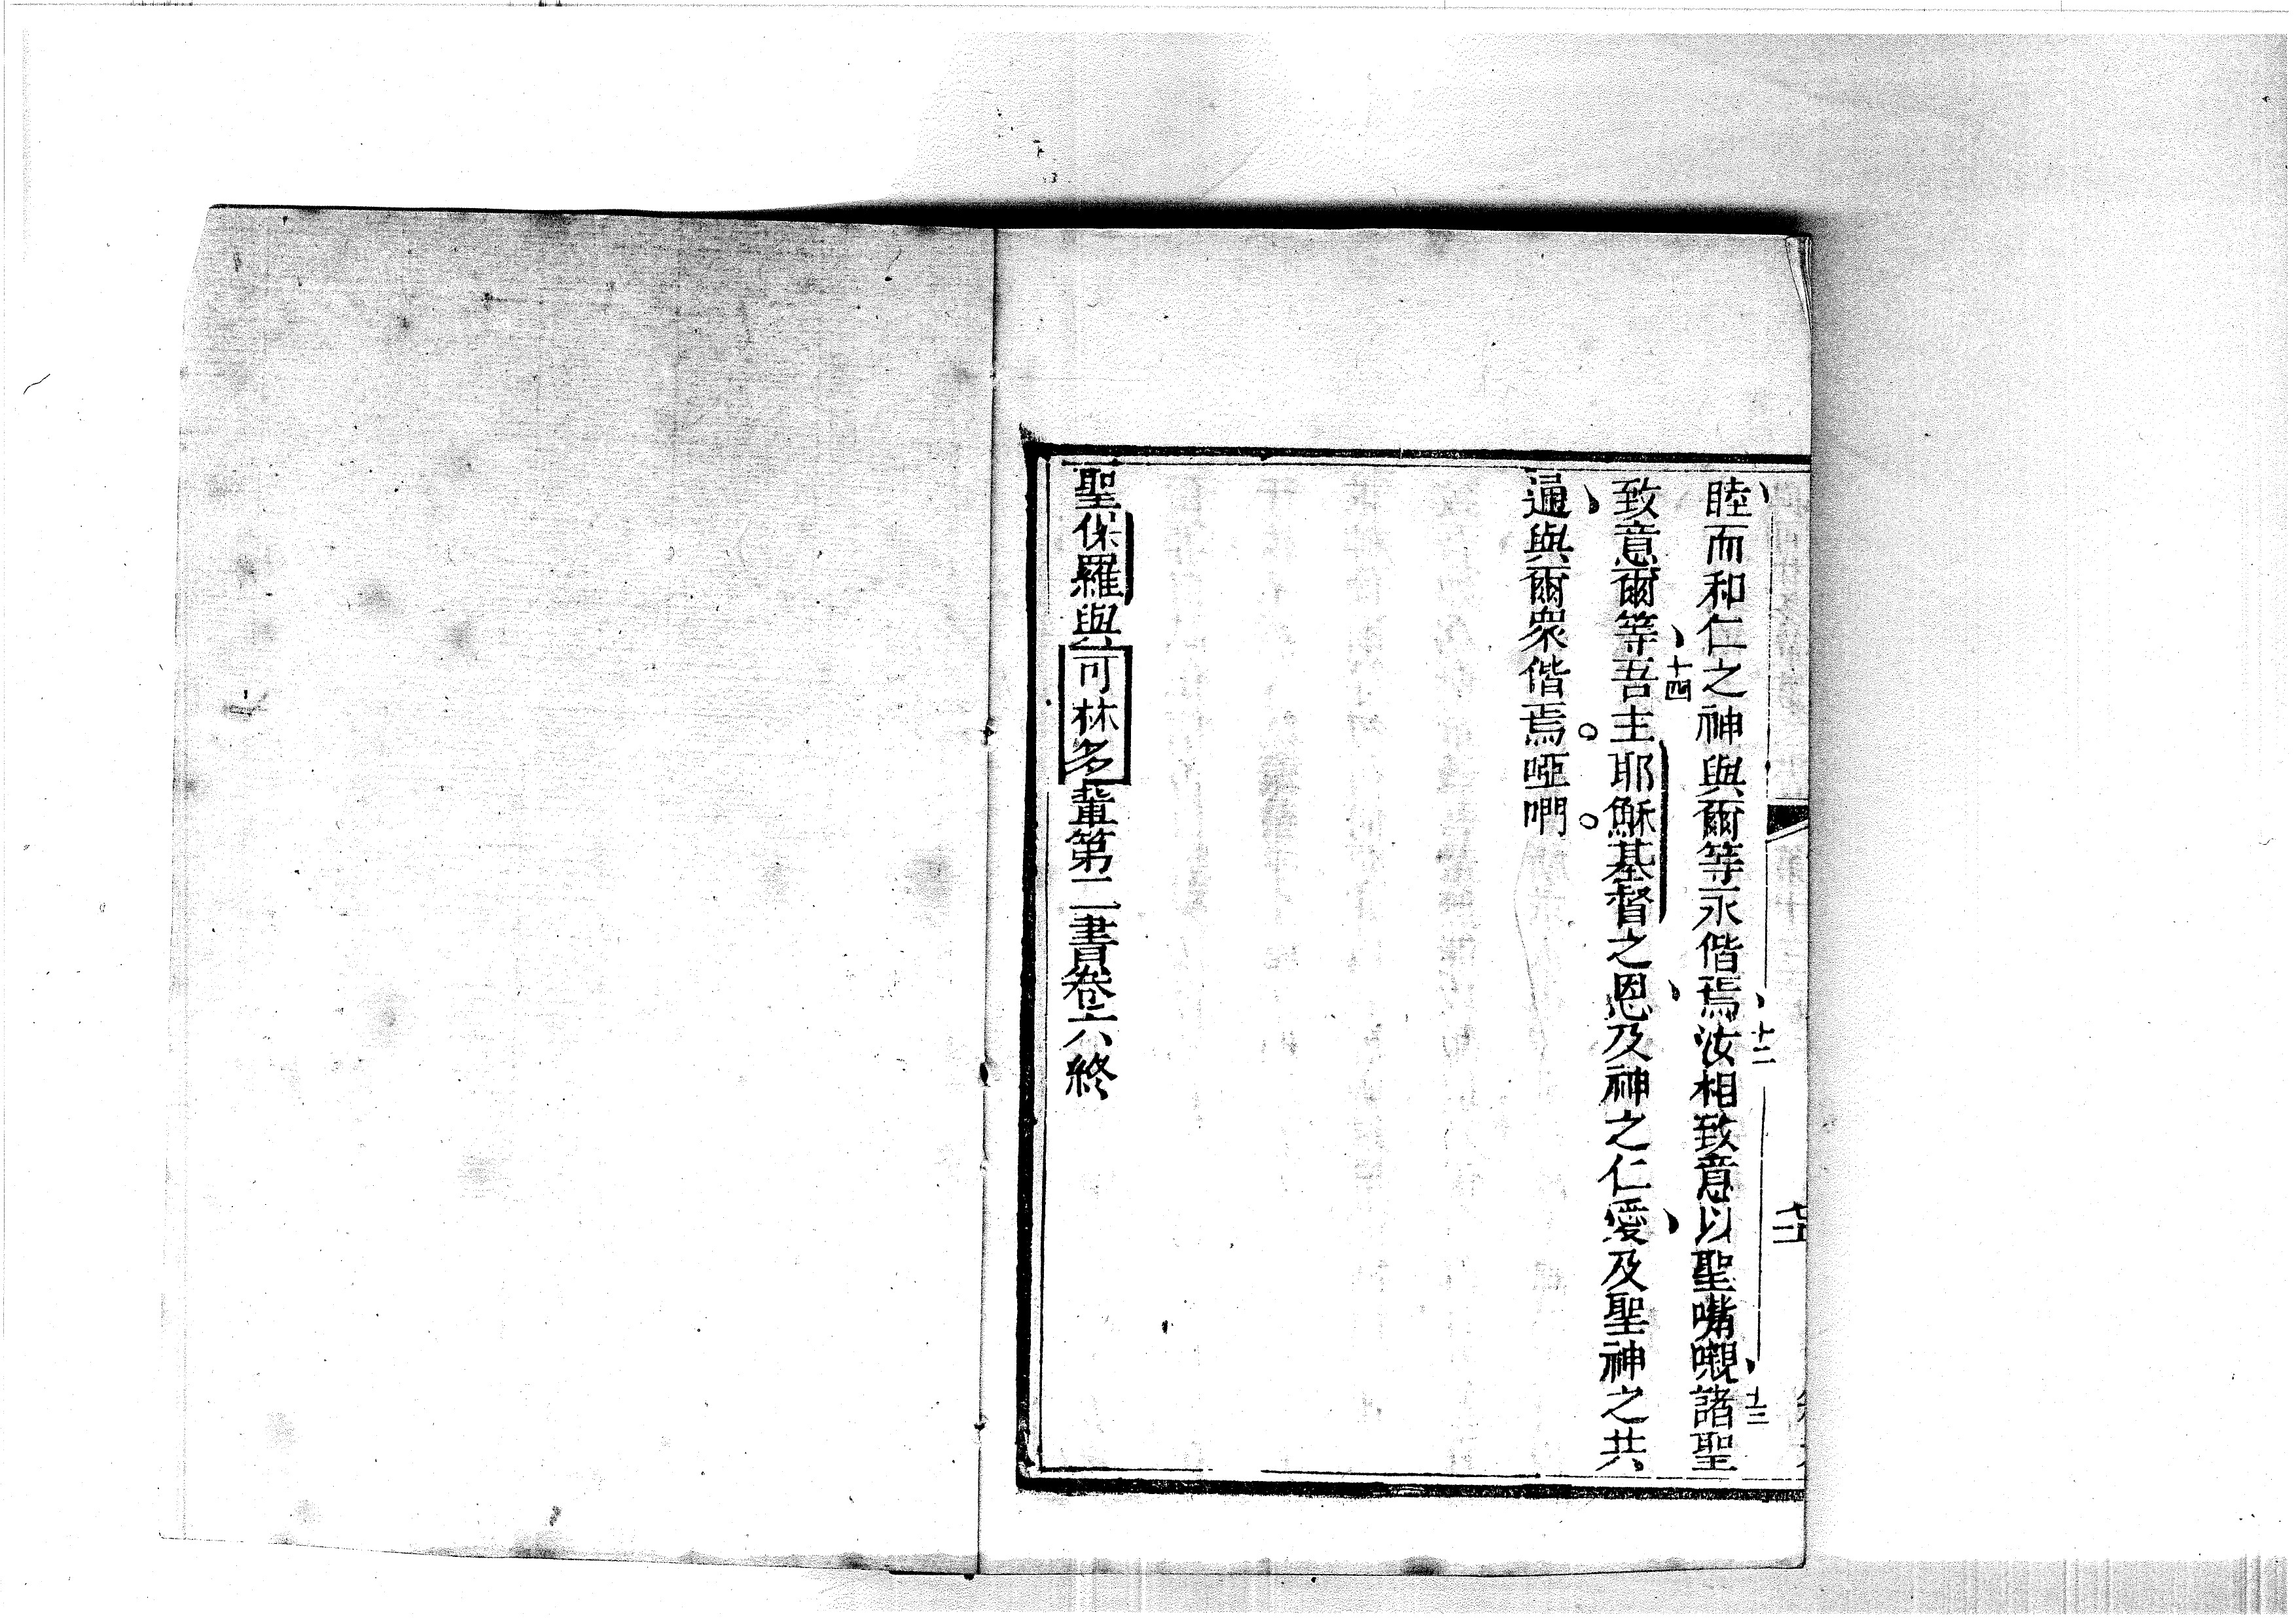 睦而和仁之神與爾等永偕焉、十二汝相致意以聖嘴嚫、十三諸聖
致意爾等、十四吾主耶穌基督之恩、及神之仁愛、及聖神之共
通、與爾衆偕焉。啞唧。
聖保羅與可林多輩第二書卷六終